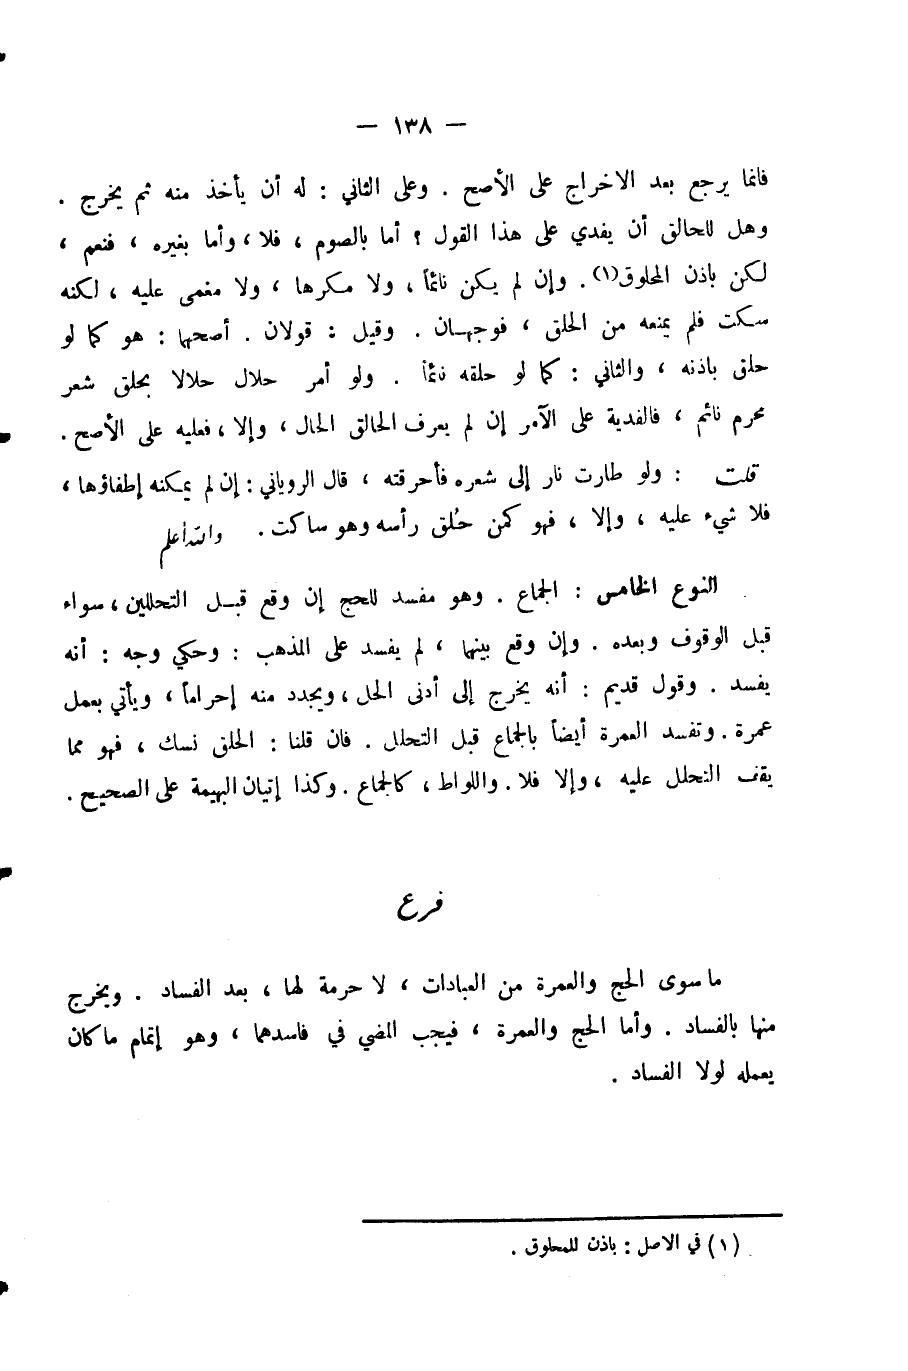 — ١٣٨ —
فانما يرجع بعد الاخراج على الأصح . وعلى الثاني : له أن يأخذ منه ثم يخرج .
وهل للحالق أن يفدي على هذا القول ؟ أما بالصوم ، فلا ، وأما بغيره ، فنعم ،
لكن باذن المحلوق(١) . وإن لم يكن نائماً ، ولا مكرها ، ولا مغمى عليه ، لكنه
سكت فلم يمنعه من الحلق ، فوجهان . وقيل : قولان . أصحها : هو كما لو
حلق باذنه ، والثاني : كما لو حلقه نائماً . ولو أمر حلال حلالا بحلق شعر
محرم نائم ، فالفدية على الآمر إن لم يعرف الحالق الحال ، وإلا ، فعليه على الأصح .
قلت : ولو طارت نار إلى شعره فأحرقته ، قال الروياني : إن لم يمكنه إطفاؤها ،
فلا شيء عليه ، وإلا ، فهو كمن حُلق رأسه وهو ساكت . والله أعلم
النوع الخامس : الجماع . وهو مفسد للحج إن وقع قبل التحللين ، سواء
قبل الوقوف وبعده . وإن وقع بينهما ، لم يفسد على المذهب : وحكي وجه : أنه
يفسد . وقول قديم : أنه يخرج إلى أدنى الحل ، ويجدد منه إحراماً ، ويأتي بعمل
عمرة . وتفسد العمرة أيضاً بالجماع قبل التحلل . فان قلنا : الحلق نسك ، فهو مما
يقف التحلل عليه ، وإلا فلا . واللواط ، كالجماع . وكذا إتيان البهيمة على الصحيح .
فرع
ما سوى الحج والعمرة من العبادات ، لا حرمة لها ، بعد الفساد . ويخرج
منها بالفساد . وأما الحج والعمرة ، فيجب المضي في فاسدهما ، وهو إتمام ما كان
يعمله لولا الفساد .
(١) في الاصل : باذن للمحلوق .